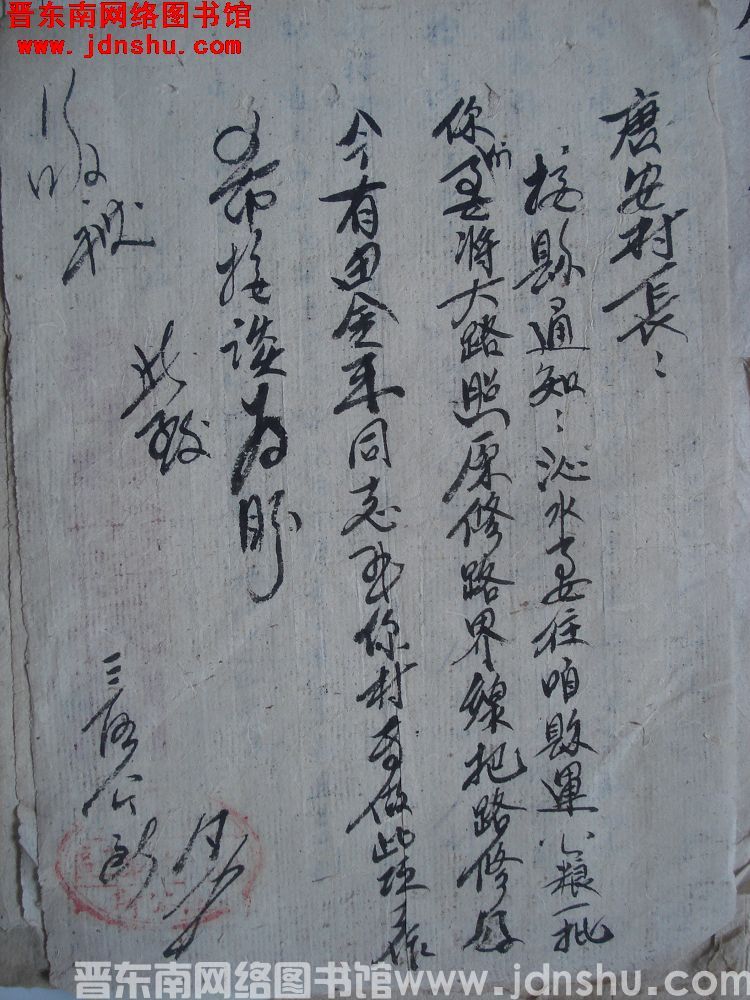 晋东南网络图书馆
www.jdnshu.com
唐安村長：
接縣通知：沁水要往咱縣運公粮一批
你们村將大路照原修路界線把路修好
今有田金来同志到你村專做此項工作
希接談为盼
此致
敬礼
三区公所
晋东南网络图书馆www.jdnshu.com